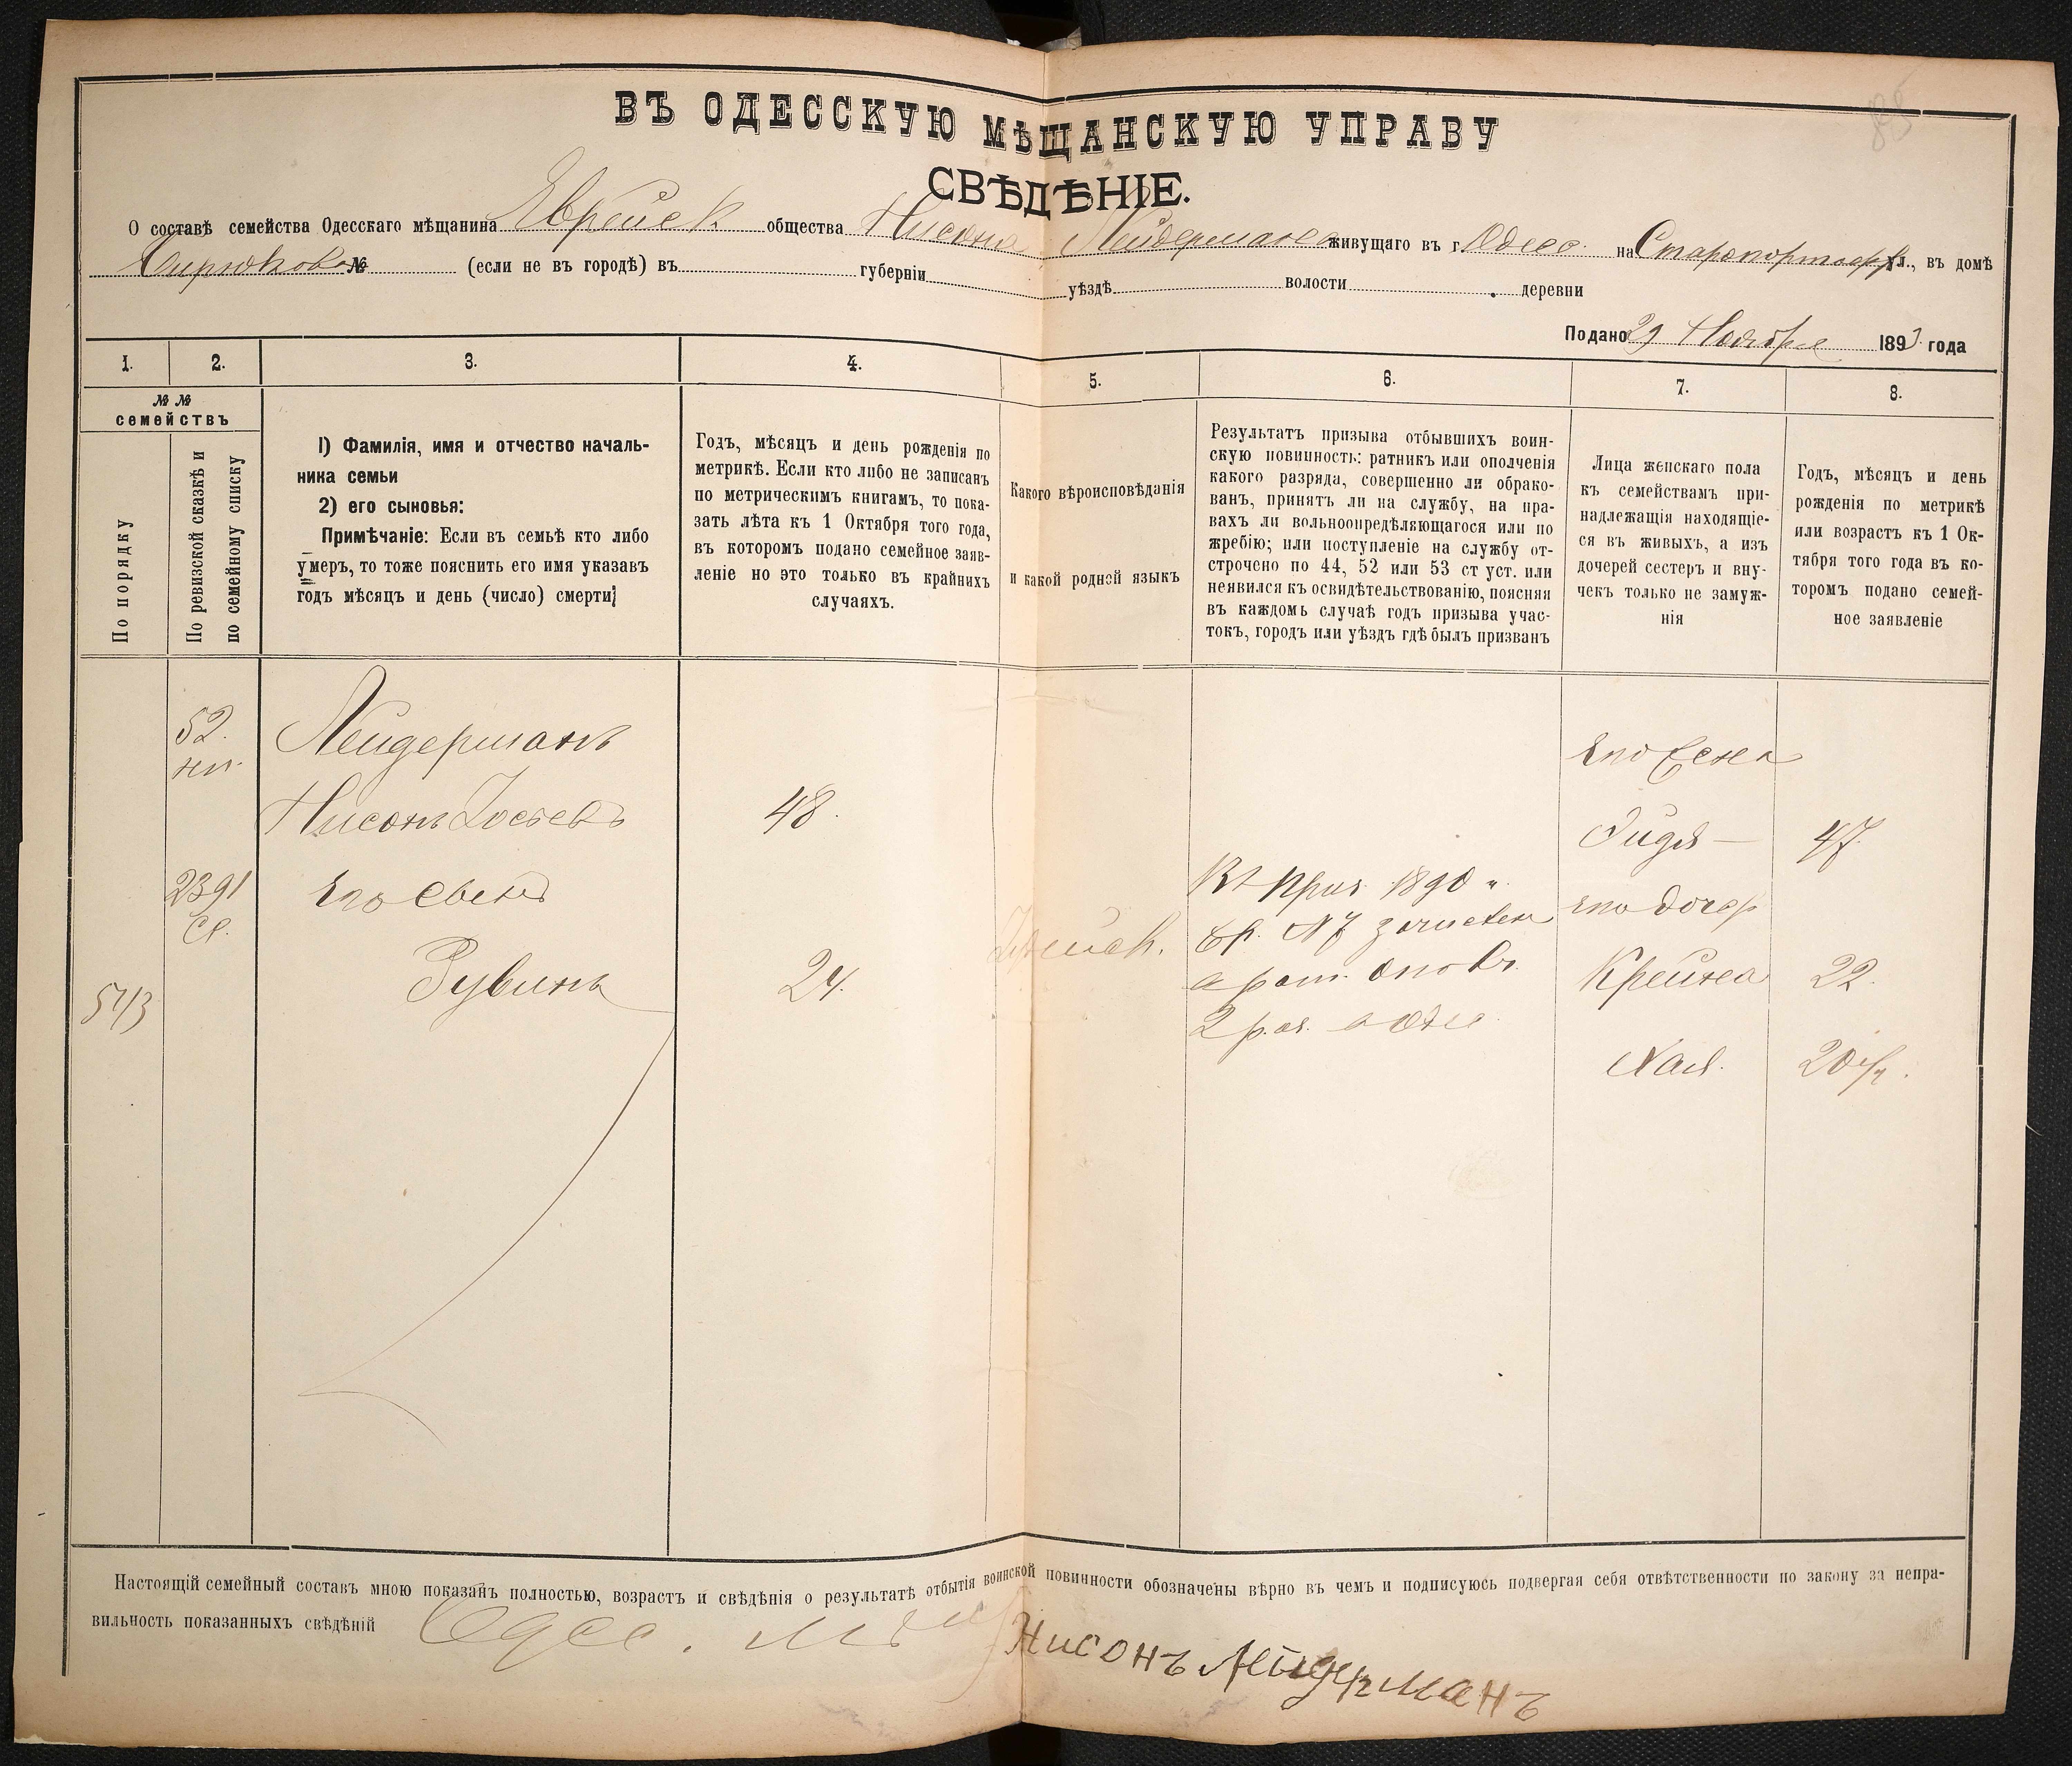 895
ВЪ ОДЕССКУЮ МѢЩАНСКУЮ УПРАВУ
СВѢДѢНІЕ.
О составѣ семейства Одесскаго мѣщанина Еврейск общества Нисона Лейдермана живущаго въ г. Одесс. на Старопортофр ул., въ домѣ
Бирюкова № (если не въ городѣ) въ губерніи уѣздѣ волости деревни
Подано 29 Ноября 1893 года
1. 2. 3. 4. 5. 6. 7. 8.
№ №
семействъ
По порядку
По ревизской сказкѣ и
по семейному списку
1) Фамилія, имя и отчество началь-
ника семьи
2) его сыновья:
Примѣчаніе: Если въ семьѣ кто либо
умеръ, то тоже пояснить его имя указавъ
годъ мѣсяцъ и день (число) смерти;
Годъ, мѣсяцъ и день рожденія по
метрикѣ. Если кто либо не записанъ
по метрическимъ книгамъ, то пока-
зать лѣта къ 1 Октября того года,
въ которомъ подано семейное заяв-
леніе но это только въ крайнихъ
случаяхъ.
Какого вѣроисповѣданія
и какой родной языкъ
Результатъ призыва отбывшихъ воин-
скую повинность: ратникъ или ополченія
какого разряда, совершенно ли обрако-
ванъ, принятъ ли на службу, на пра-
вахъ ли вольноопредѣляющагося или по
жребію; или поступленіе на службу от-
строчено по 44, 52 или 53 ст уст. или
неявился къ освидѣтельствованію, поясняя
въ каждомъ случаѣ годъ призыва учас-
токъ, городъ или уѣздъ гдѣ былъ призванъ
Лица женскаго пола
къ семействамъ при-
надлежащія находящіе-
ся въ живыхъ, а изъ
дочерей сестеръ и вну-
чекъ только не замуж-
нія
Годъ, мѣсяцъ и день
рожденія по метрикѣ
или возрастъ къ 1 Ок-
тября того года въ ко-
торомъ подано семей-
ное заявленіе
52.
Лейдерманъ
Его жена
Нисонъ Іосевъ 48. 47.
2391 Его сынъ
Въ приз. 1890
его дочер
зачислен
Рувинъ 24. Еврейск.
в рат. опол.
Крейна 22.
543
2 раз.
Хая. 20
Настоящій семейный составъ мною показанъ полностью, возрастъ и свѣдѣнія о результатѣ отбытія воинской повинности обозначены вѣрно въ чемъ и подписуюсь подвергая себя отвѣтственности по закону за непра-
вильность показанныхъ свѣдѣній Одес. мѣщ
Нисонъ Лейдерманъ